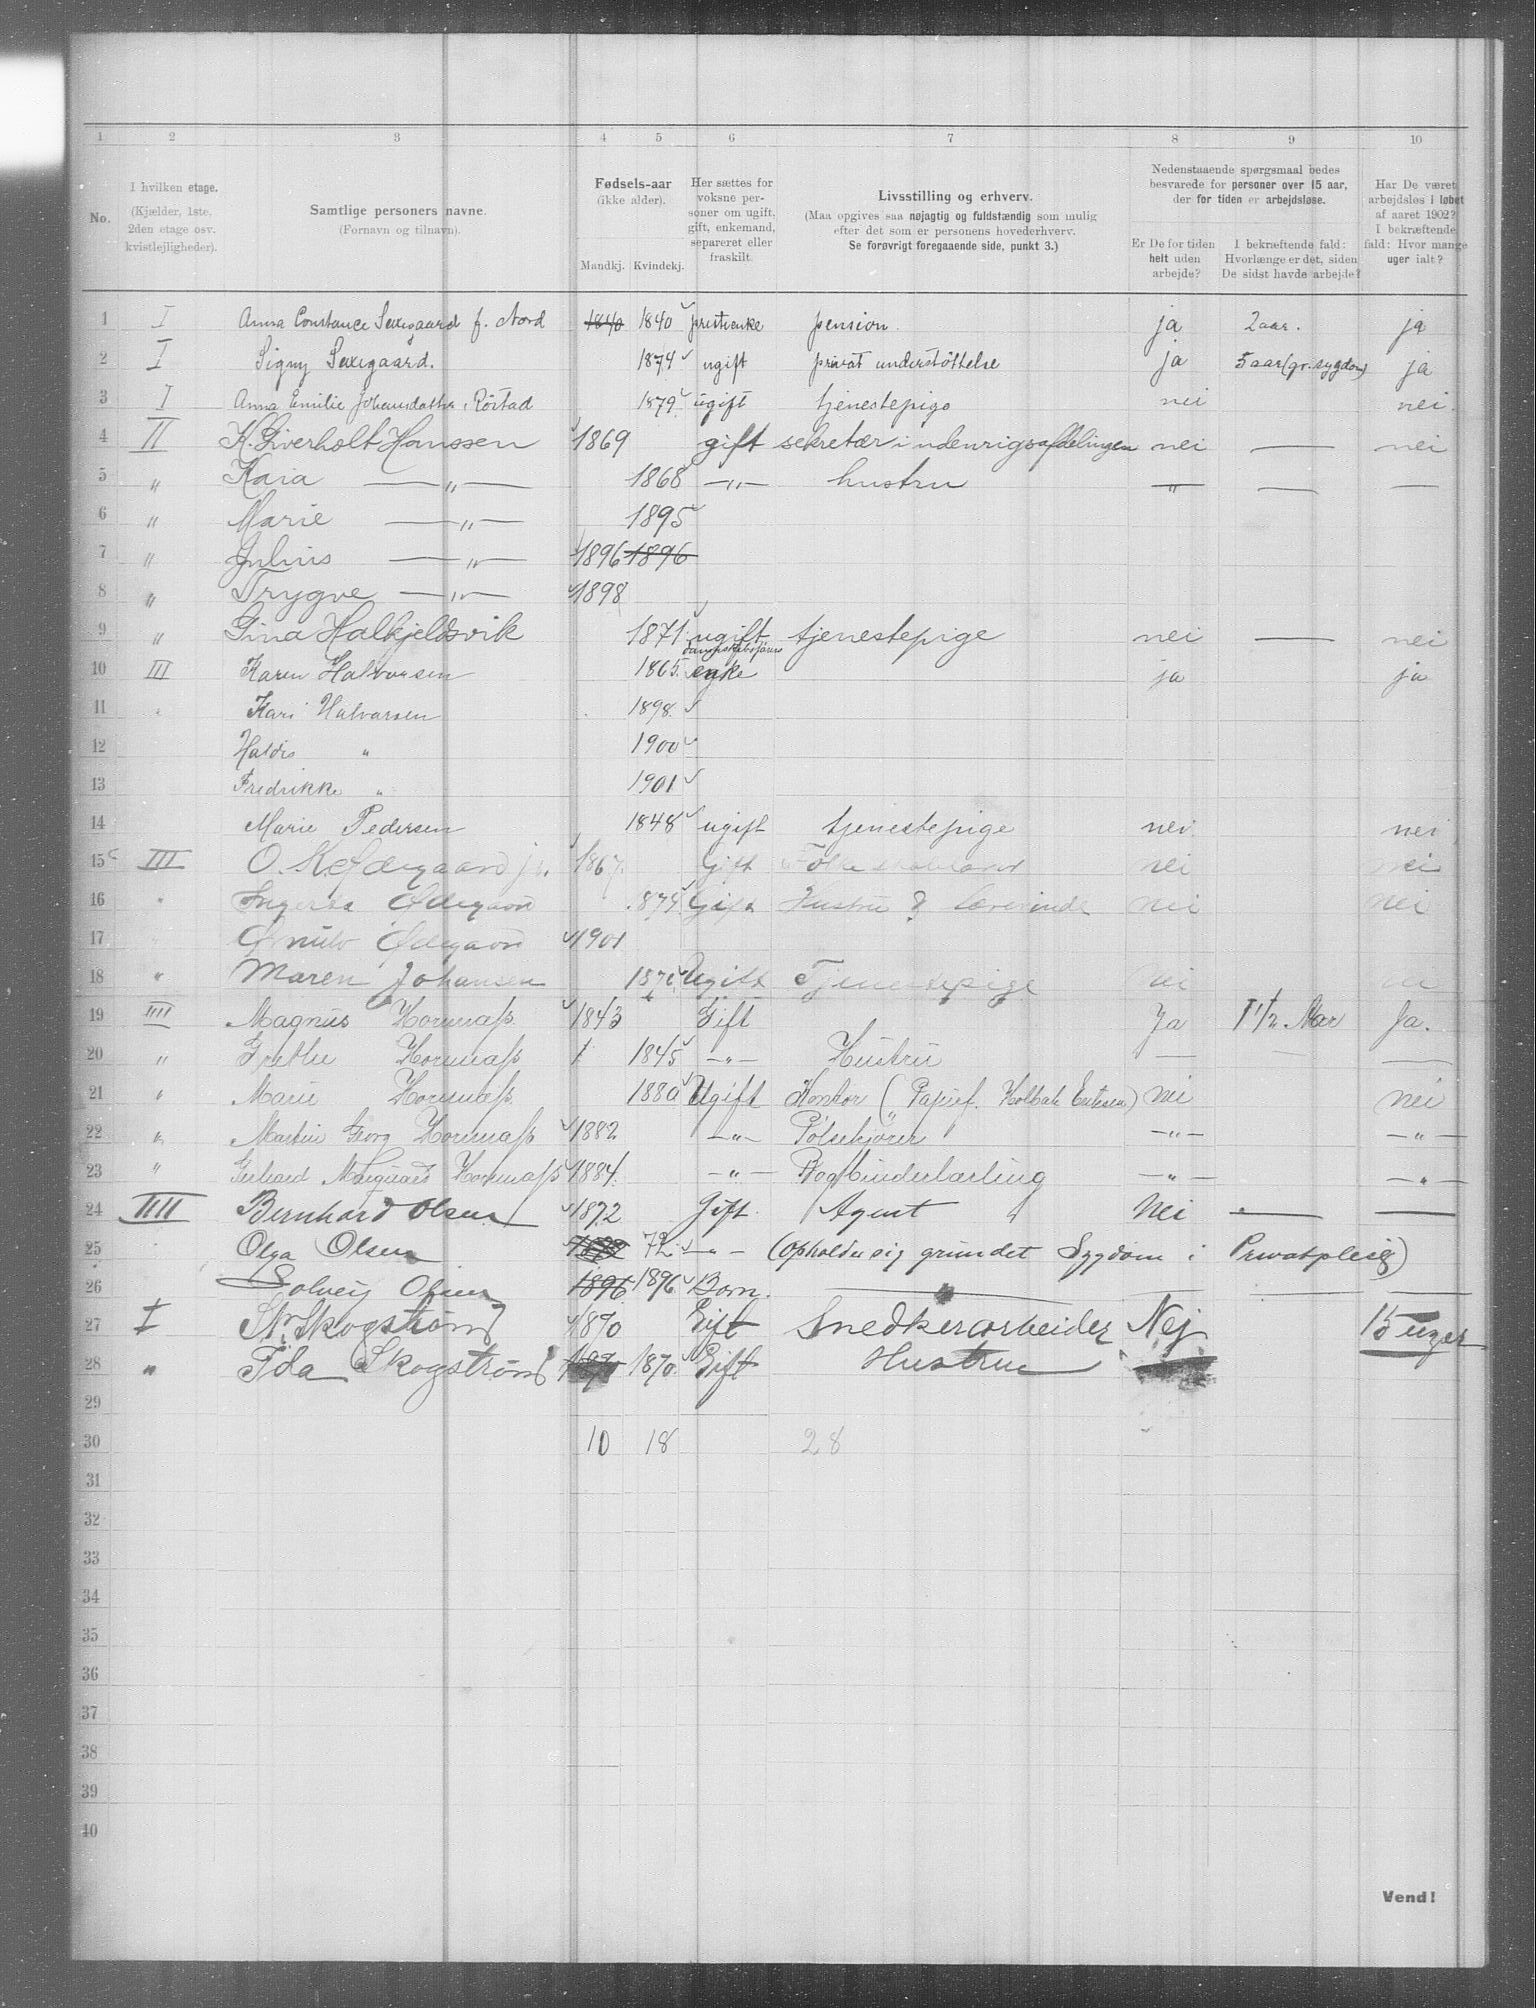 1 2 3 4 5 6 7 8 9 10
No.
I hvilken etage.
(Kjælder, 1ste,
2den etage osv.
kvistlejligheder).
Samtlige personers navne.
(Fornavn og tilnavn).
Fødsels-aar
(ikke alder).
Mandkj. Kvindekj.
Her sættes for
voksne per-
soner om ugift,
gift, enkemand,
separeret eller
fraskilt.
Livsstilling og erhverv.
(Maa opgives saa nøjagtig og fuldstændig som mulig
efter det som er personens hovederhverv.
Se forøvrigt foregaaende side, punkt 3.)
Nedenstaaende spørgsmaal bedes
besvarede for personer over 15 aar,
der for tiden er arbejdsløse.
Er De for tiden
helt uden
arbejde?
I bekræftende fald:
Hvorlænge er det, siden
De sidst havde arbejde?
Har De været
arbejdsløs i løbet
af aaret 1902?
I bekræftende
fald: Hvor mange
uger ialt?
1 I Anna Constance Saxegaard f. Nord 1840 1840 prestenke pension. ja 2 aar. ja
2 I Signy Saxegaard. 1874 ugift privat understöttelse ja 5 aar (gr. sygdom) ja
3 I Anna Emilie Johansdatter Röstad 1879 ugift tjenestepige nei nei.
4 II K. Siverholt Hanssen 1869 gift sekretær i indenrigsafdelingen nei — nei
5 " Kaia —"— 1868 —"— hustru " — —
6 " Marie —"— 1895
7 " Julius —"— 1896 1896
8 " Trygve —"— 1898
9 " Gina Halkjeldsvik 1871 ugift tjenestepige nei — nei
10 III Karen Halvorsen 1865 enke ja ja
11 Kari Halvorsen 1898
12 Haldis " 1900
13 Fredrikke " 1901
14 Marie Pedersen 1848 ugift tjenestepige nei nei
15 III O. K. Ødegaard jr. 1867. Gift Folkeskolelærer nei nei
16 " Ingerda Ødegaard 1874 Gift Hustru & lærerinde nei nei
17 Ørnulv Ødegaard 1901
18 " Maren Johansen Ugift Tjenestepige nei
19 IIII Magnus Hornnæss 1843 Gift Ja 1 1/2 Aar Ja.
20 " Grethe Hornnæss 1845 —"— Hustru — — —
21 " Marie Hornnæss 1880 Ugift Kontor (Papirf. Holbæk Eriksen) nei nei
22 " Martin Georg Hornnæss 1882 —"— Pölsekjører —"— —"—
23 " Gerhard Marquard Hornnæss 1884. —"— Bogbinderlærling —"— —"—
24 IIII Bernhard Olsen 1872 Gift. Agent Nei — —
25 Olga Olsen 72 —"— (opholder sig grundet Sygdom i Privatpleie)
26 Solveig Olsen 1896 1896 Barn. —
27 I Skogström 1870 Gift Snedkerarbeider Nej 15 uger
28 " Ida Skogström 1870. Gift Hustrue
29
30 10 18 28
31
32
33
34
35
36
37
38
39
40
Vend!